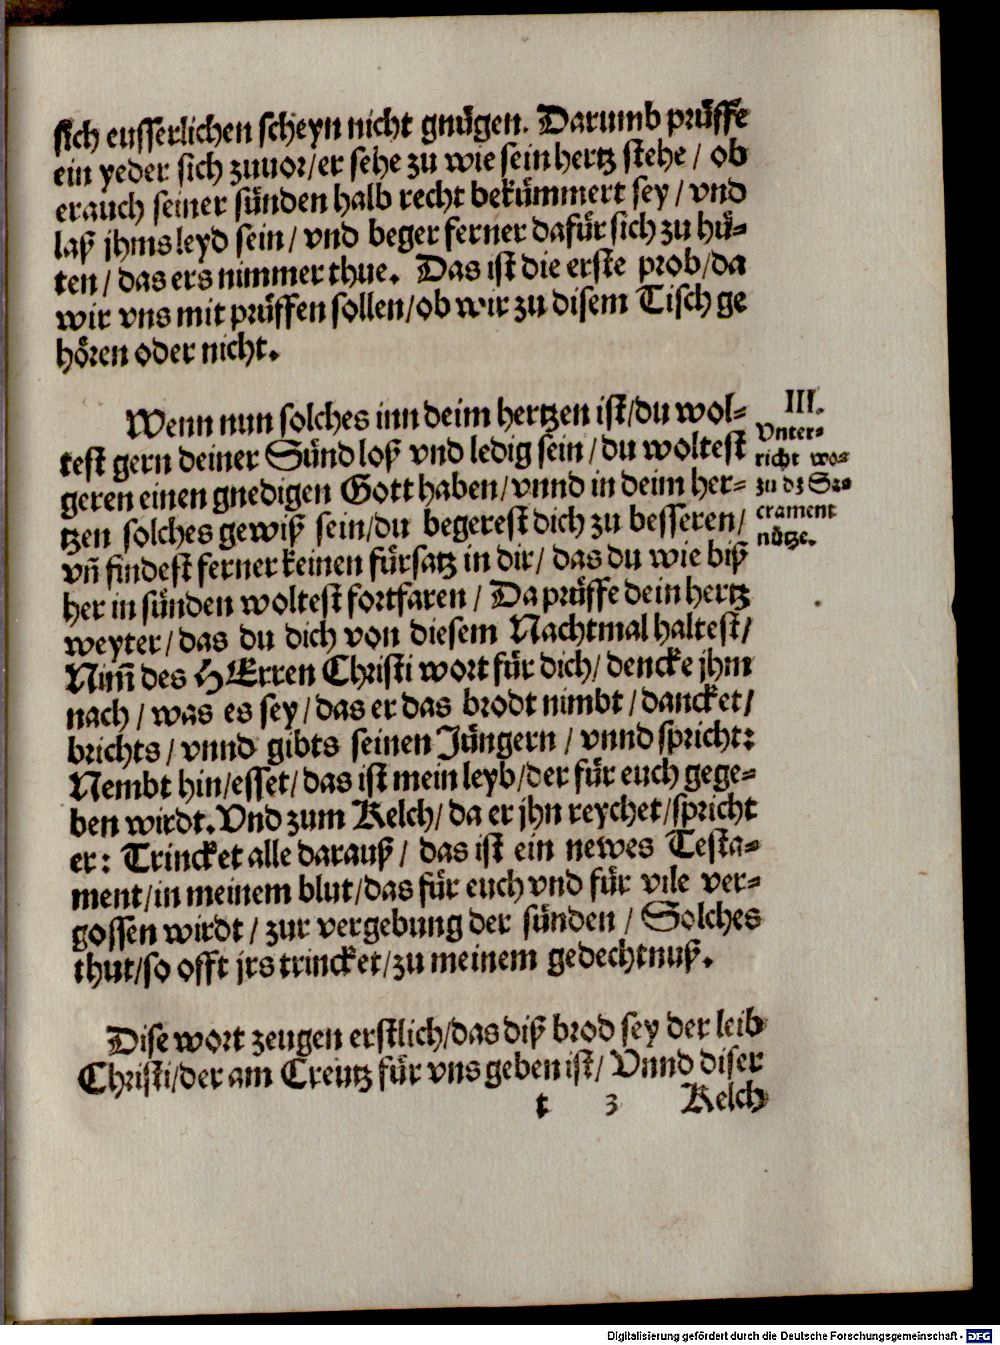 sich eusserlichen scheyn nicht gnügen. Darumb prüffe
ein yeder sich zuuor/er sehe zu wie sein hertz stehe / ob
erauch seiner sünden halb recht bekümmert sey / vnd
laß jhms leyd sein / vnd beger ferner dafür sich zu hü-
ten / das ers nimmer thue. Das ist die erste prob/da
wir vns mit prüffen sollen/ob wir zu disem Tisch ge
hören oder nicht.
Wenn nun solches inn deim hertzen ist/du wol-
test gern deiner Sünd loß vnd ledig sein / du woltest
geren einen gnedigen Gott haben/vnnd in deim her-
tzen solches gewiß sein/du begerest dich zu besseren/
vñ findest ferner keinen fürsatz in dir/ das du wie biß
her in sünden woltest fortfaren / Da prüffe dein hertz
weyter/das du dich von diesem Nachtmal haltest/
Nim̃ des HErren Christi wort für dich/dencke jhm
nach / was es sey/das er das brodt nimbt/dancket/
brichts/vnnd gibts seinen Jüngern / vnnd spricht:
Nembt hin/esset/das ist mein leyb/der für euch gege-
ben wirdt. Vnd zum Kelch/ da er jhn reychet/spricht
er: Trincket alle darauß/ das ist ein newes Testa-
ment/in meinem blut/das für euch vnd für vile ver-
gossen wirdt / zur vergebung der sünden / Solches
thut/so offt jrs trincket/zu meinem gedechtnuß.
III.
Vnter-
richt wo-
zu dz Sa-
crament
nütze.
Dise wort zeugen erstlich/das diß brod sey der leib
Christi/der am Creutz für vns geben ist/ Vnnd diser
t 3 Kelch
Digitalisierung gefördert durch die Deutsche Forschungsgemeinschaft - DFG